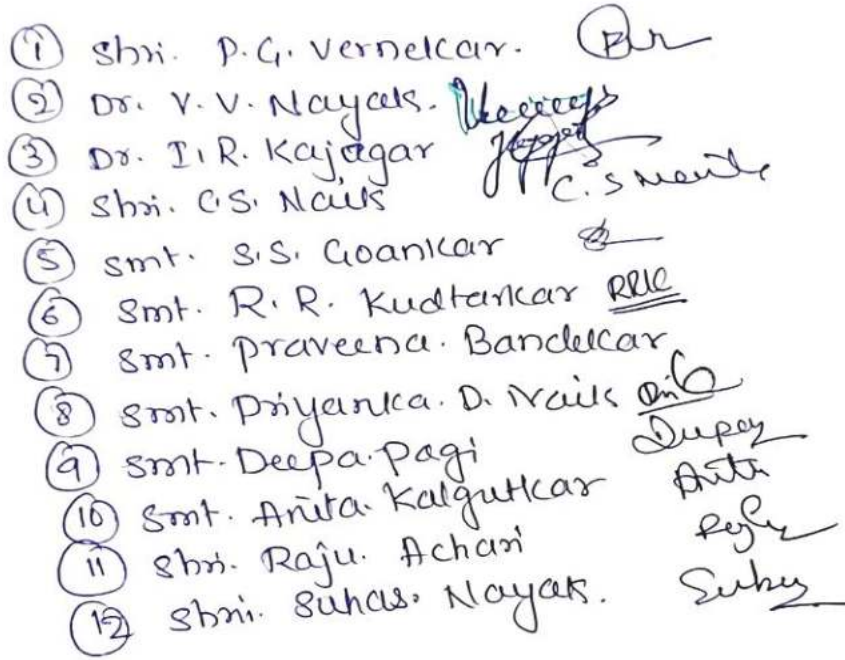 ① Shri. P.G. Vernekar.
② Dr. V. V. Nayak.
③ Dr. I.R. Kajagar
④ Shri. C.S. Naik C.S Naik
⑤ Smt. S.S. Goankar
⑥ Smt. R.R. Kudtarkar RRK
⑦ Smt. Praveena. Bandekar
⑧ Smt. Priyanka. D. Naik
⑨ Smt. Deepa. Pagi
⑩ Smt. Anita. Kalgutkar Anita
⑪ Shri. Raju. Achari
⑫ Shri. Suhas. Nayak.